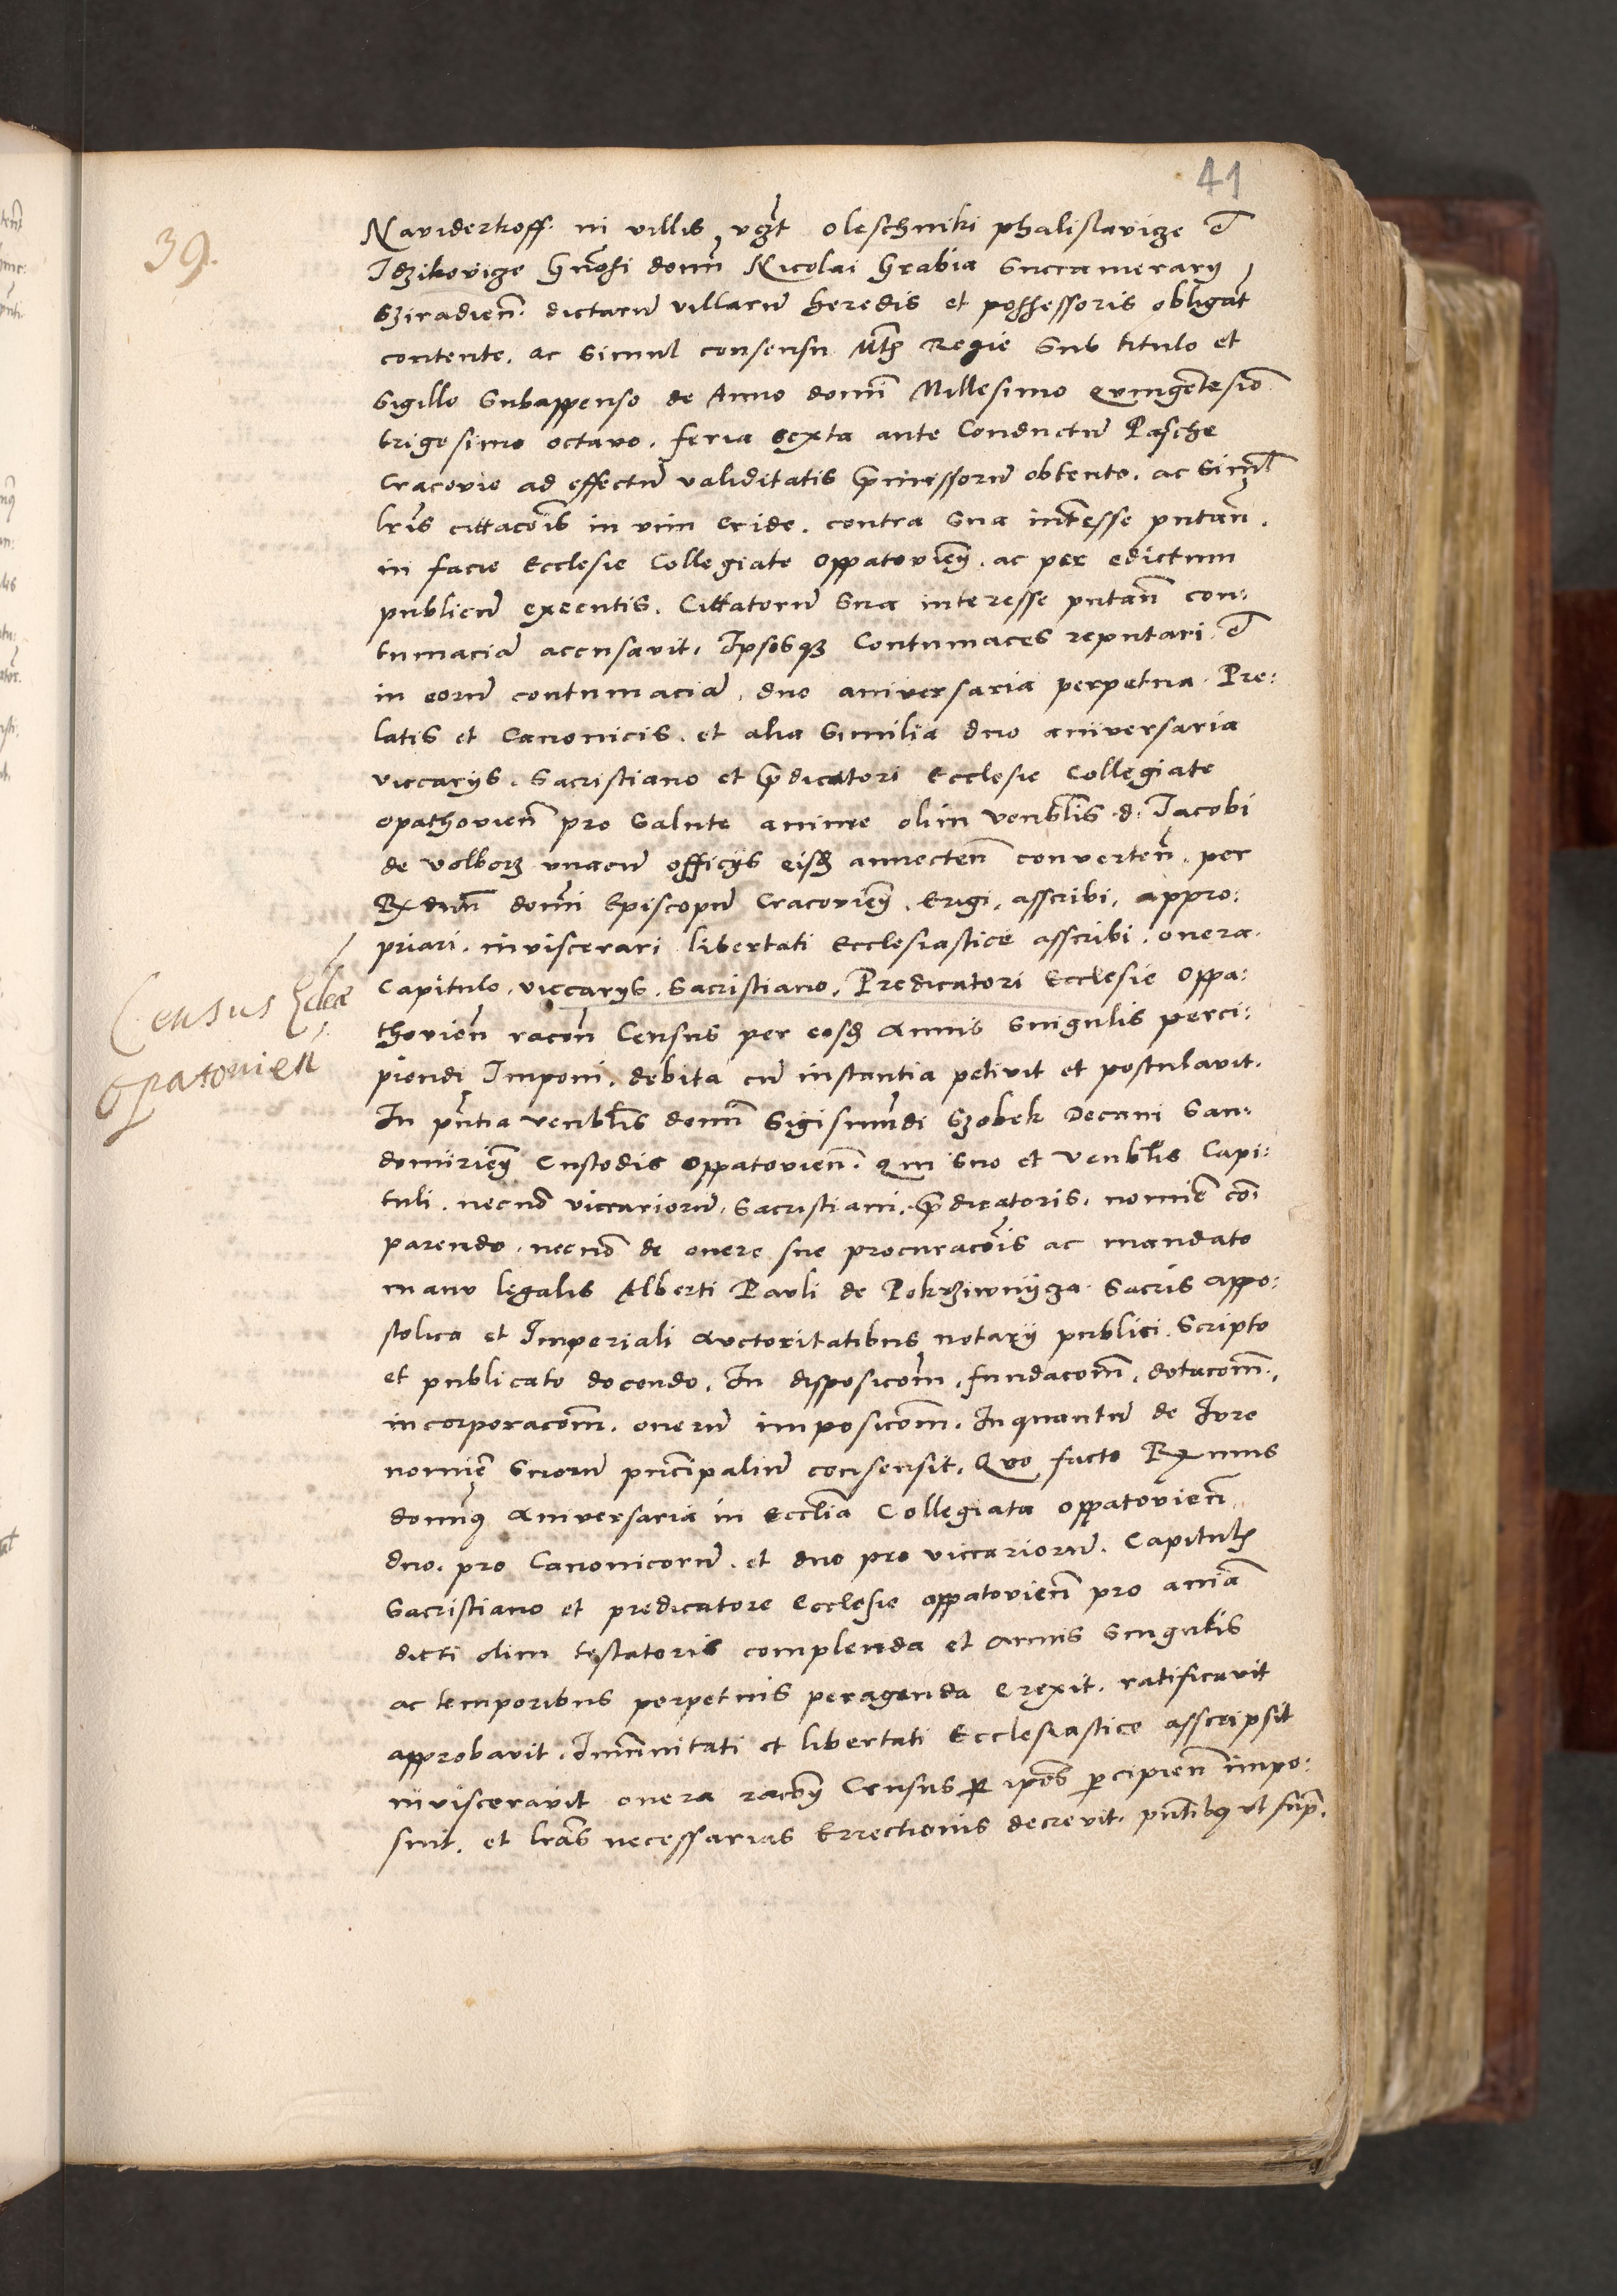 41
39.
Naviderkoff in villis, vczt oleschniki phalislavicze et
Idzikovicze Gnosi domi Nicolai Hrabia Succamerarÿ
Sziradien. dictarũ villarũ heredis et possessoris obligat
contente, ac simul consensu Mtis Regie sub titulo et
Sigillo subappenso de Anno domi Millesimo quingẽtesimo
trigesimo octavo, feria sexta ante Conductũ Pasche
Cracovie ad effectũ validitatis p̃missorũ obtento, ac siml
lr̃is cittacõib in vim cride, contra sua interesse pntañ.
in facie Ecclesie Collegiate Oppatovieñ, ac per edictum
publicũ exeentis, Cittatorũ sua interesse pntañ con:
tumaciã accusavit, Ipsosqz Contumaces reputari et
in eorũ contumaciã, duo aniversaria perpetua Pre:
latis et Canonicis, et alia similia duo aniversaria
viccarÿs, Sacristiano et p̃dicatori Ecclesie Collegiate
opathovieñ pro salute anime olim venblis d. Jacobi
de Volborz unacũ officÿs eisdẽ annecteñ converteñ, per
Rx dum domi Episcopũ Cracovieñ, Erigi, asscribi, appro:
priari, inviscerari libertati Ecclesiastice asscribi, onera
Capitulo, viccarÿs, Sacristiano, Predicatori Ecclesie Oppa:
thovieñ racoñ Census per eosdẽ Annis singulis perci:
piendi Imponi, debita cũ instantia petivit et postulavit.
Census Eccliae
Opatovien
In pñtia venblis domi Sigismundi Szobek Decani San:
domirieñ Custodis Oppatovieñ. qui suo et Venblis Capi:
tuli, necnõ viccariorũ, Sacristiani, p̃dicatoris, nomiẽ cõ
parendo, necnõ de onere sue procuracõis ac mandato
manu legalis Alberti Pauli de Pokrziwnÿcza Sacris Appo:
stolica et Imperiali Auctoritatibus notarÿ publici, Scripto
et publicato docendo, In disposicom̃, fundacom̃, dotacom̃,
incorporacom̃, onerũ imposicom̃, Inquantũ de Iure
nomiẽ suorũ pñcipaliũ consensit, Quo facto Rx mus
domñus Aniversaria in Ecclia Collegiata oppatovieñ
duo, pro Canonicorũ, et duo pro viccariorũ, Capitulis
Sacristiano et predicatore Ecclesie oppatovieñ pro aniã
dicti olim testatoris complenda et Annis singulis
ac temporibus perpetuis peragenda Erexit, ratificavit
approbavit, Imm̃nitati et libertati Ecclesiastice asscripsit
inviscerãvit onera racõy Census p ipos pcipieñ impo:
suit, et lrãs necessarias Errectionis decrevit, pñtibus ut sup̃.